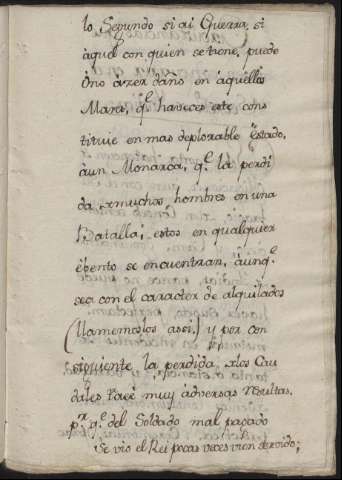 lo Segundo si ai Guerra, si
aquel con quien se tiene, puede
ôno azer daño en aquellos
Mares, q.e haveces este cons
tituie en mas deplorable estado,
âun Monarca, q.e la perdi
da muchos, hombres en una
Batalla; estos en qualquier
ebento se encuentran, âunq.e
sea con el caracter de alquilados
(llamemoslos asei,) y por con
siguiente la perdida los Cau
dales trae muy adversas resultas.
p.r q.e del Soldado mal pagado
se vio el Rei pocas veces vien servido;